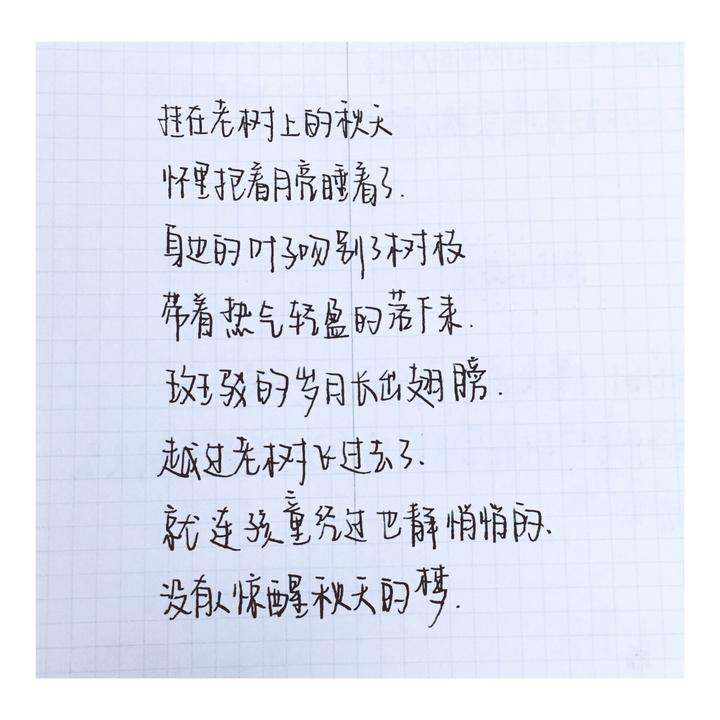 挂在老树上的秋天
怀里抱着月亮睡着了.
身边的叶子吻别了树枝
带着热气轻盈的落下来.
斑驳的岁月长出翅膀.
越过老树飞过去了.
就连孩童经过也静悄悄的.
没有人惊醒秋天的梦.